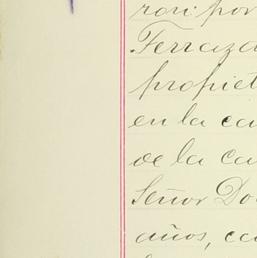 ron: por
Ferraz
propiet
en la ca
de la ca
Señor Do
años, ca